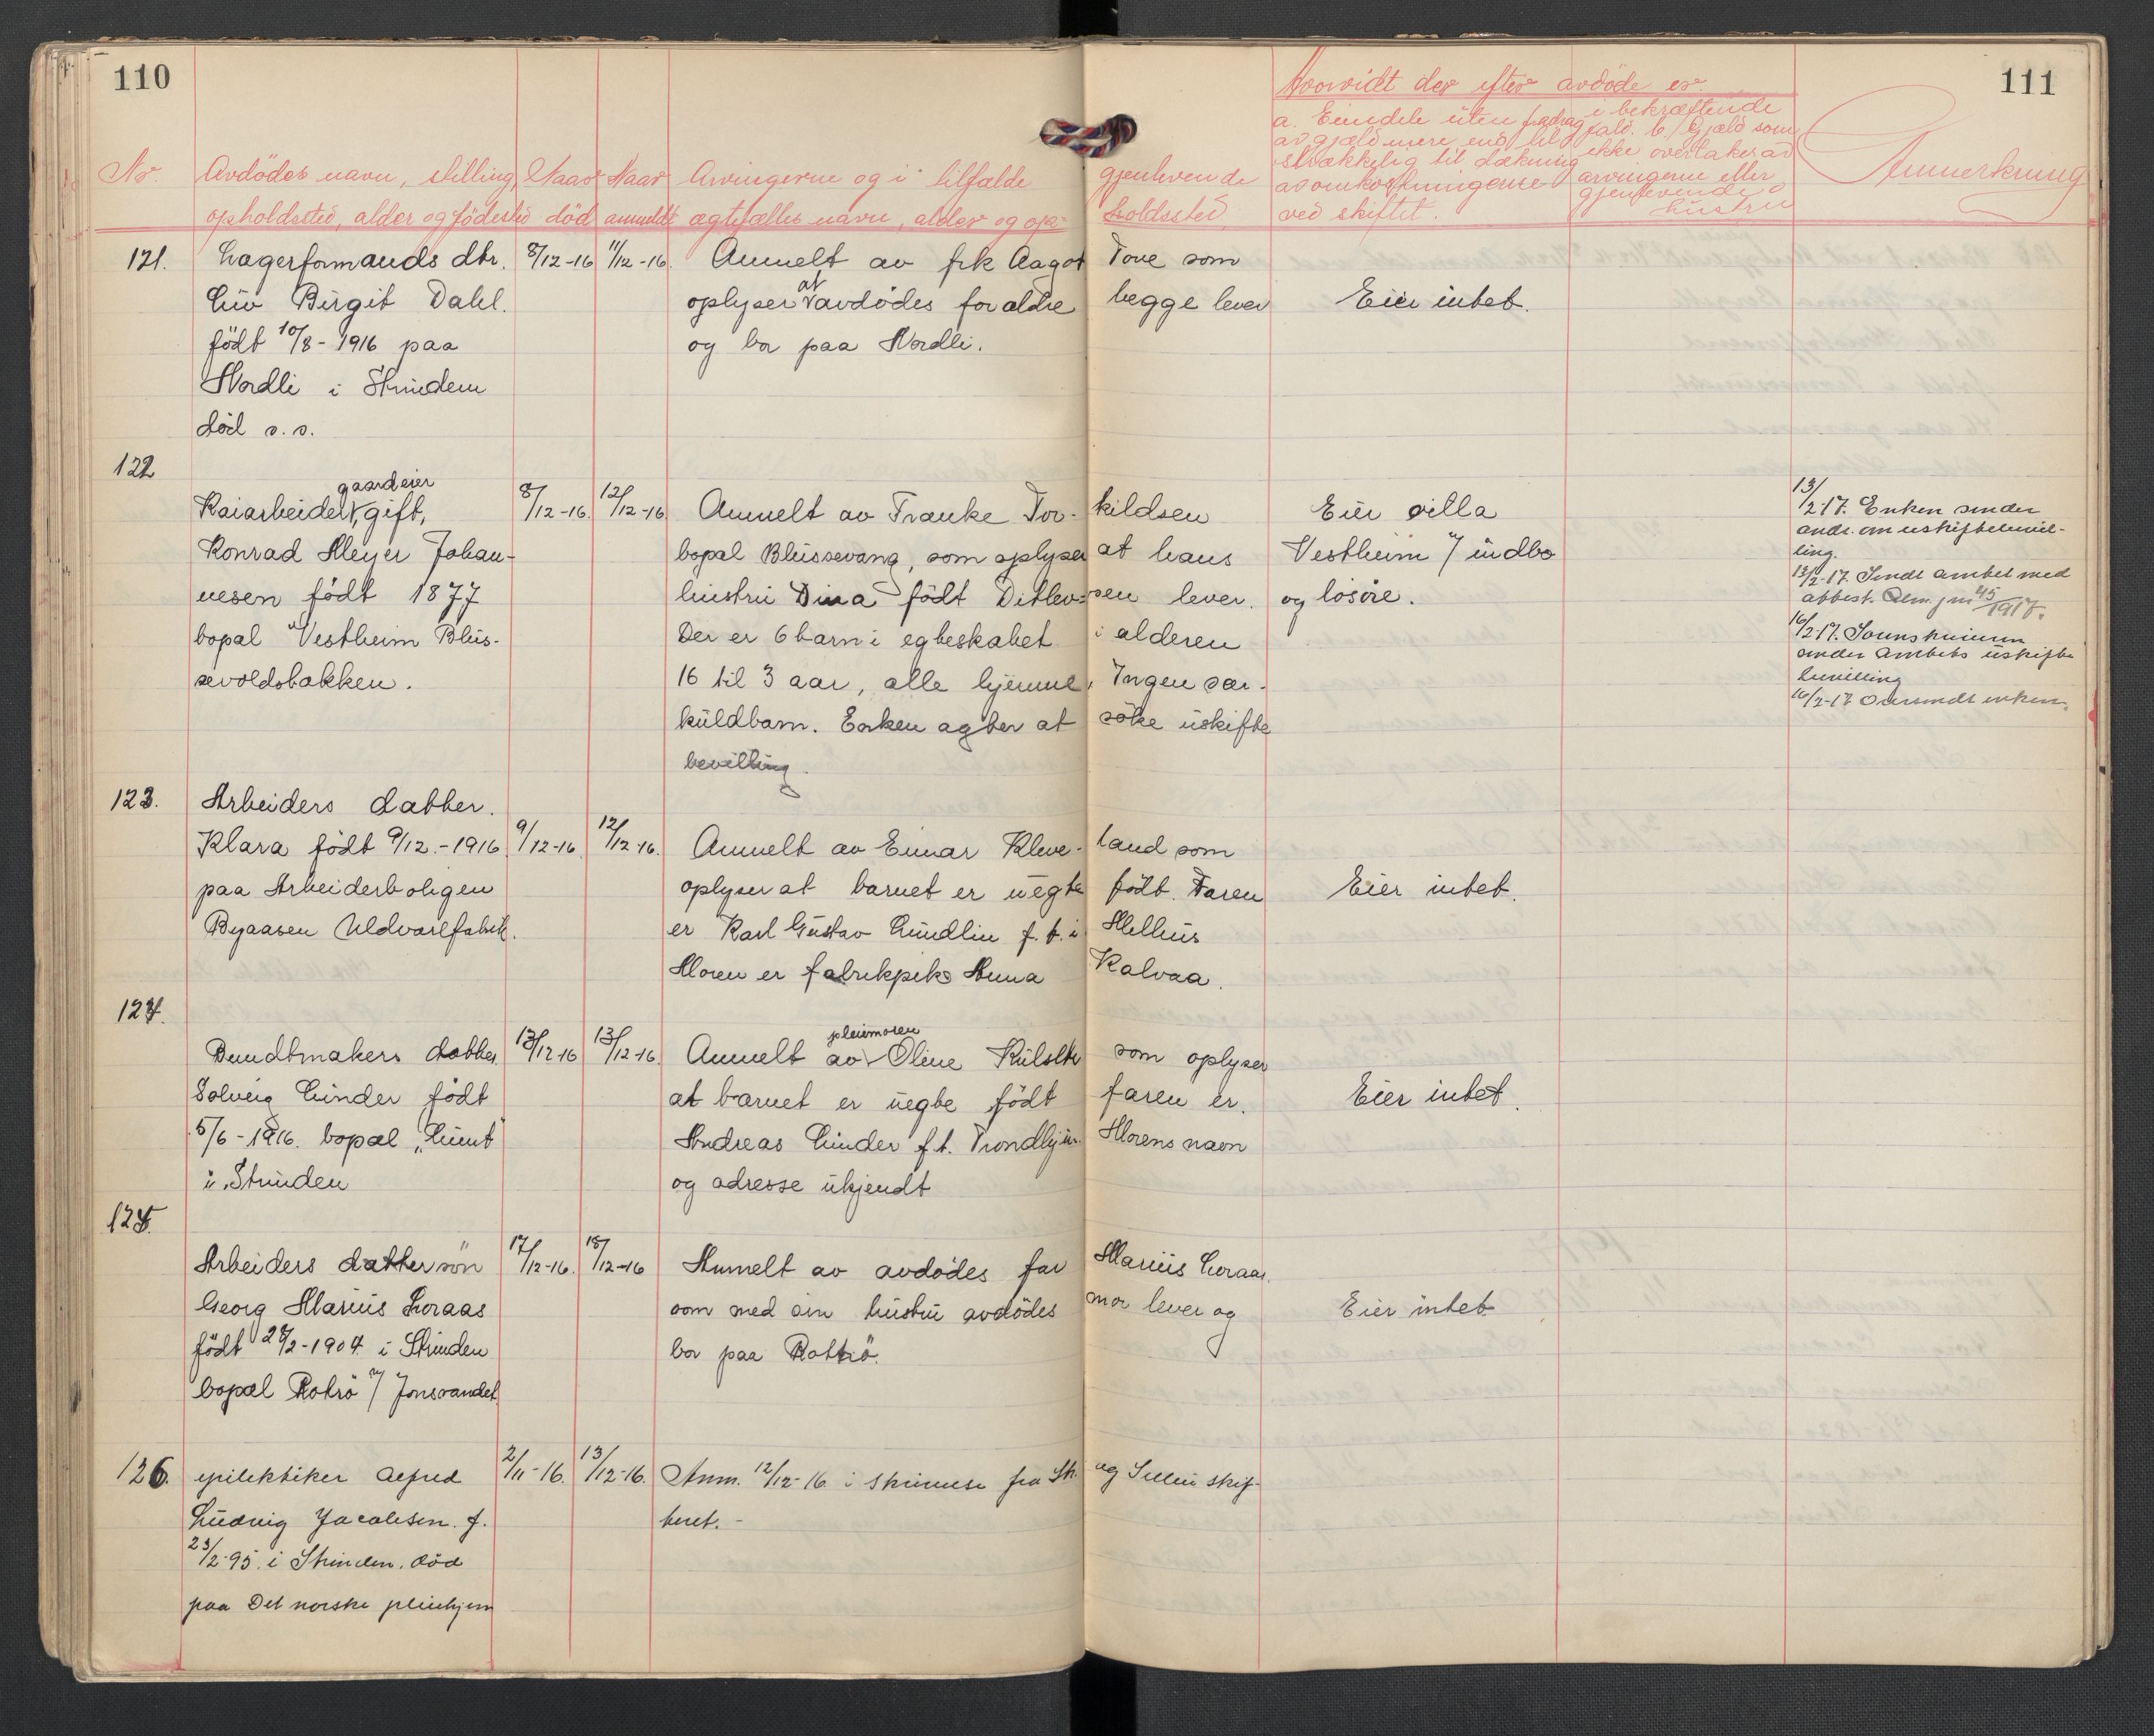 110
111
Hvorvidt der efter avdöde er.
a. Eiendele uten fradrag
av gjæld mere end til-
strækkelig til dækning
av omkostningerne
ved skiftet.
i bekræftende
fald. b/ Gjæld som
ikke overtakes av
arvingerne eller
gjenlevende
hustru
Nr. Avdödes navn, stilling, Naar Naar Arvingerne og i tilfælde gjenlevende Anmerkning
opholdssted, alder og födested död anmeldt ægtefælles navn, alder og op- holdssted.
121. Lagerformands dtr. 8/12-16 11/12-16. Anmelt av frk Aagot Tove som
Liv Birgit Dahl. oplyser at avdödes foraldre begge lever Eier intet.
födt 10/8-1916 paa og bor paa Nordli.
Nordli i Strinden
död s.s.
122
Kaiarbeider, gaardeier gift, 8/12-16. 12/12-16 Anmelt av Franke Tor- kildsen Eier villa
Konrad Meyer Johan- bopal Blussevang, som oplyser at hans Vestheim m/ indbo
nesen födt 1877 hustru Dina födt Ditlev- sen lever. og lösöre.
bopal "Vestheim Blus- Der er 6 barn i egteskabet i alderen
sevoldsbakken. 16 til 3 aar, alle hjemme, Ingen sær-
kuldbarn. Enken agter at söke uskifte
bevilling.
13/2-17. Enken sender
andr. om uskiftebevil-
ling.
13/2-17. Sendt amtet med
attest. 45/1917.
16/2-17.
sender amtets uskifte
bevilling
16/2-17 Oversendt enken.
123. Arbeiders datter.
Klara födt 9/12.-1916 9/12-16 12/12-16. Anmelt av Einar Kleve- land som
paa Arbeiderboligen oplyser at barnet er uegte födt. Faren Eier intet.
Byaasen Uldvarefabrik. er Karl Gustav Lundlin f.t. i Melhus
Moren er fabrikpike Anna Kalvaa.
124.
Bundtmakers datter 13/12-16 13/12-16. Anmelt av pleiemoren Oline Kulseth som oplyser
Solveig Linder födt at barnet er uegte födt faren er. Eier intet.
5/6-1916. bopæl "Lunt" Andreas Linder f.t. Trondhjem. Morens navn
i Strinden og adresse ukjendt
125.
Arbeiders datter sön 17/12-16. 18/12-16 Anmelt av avdödes far Marius Loraas.
Georg Marius Loraas som med sin hustru avdödes mor lever og Eier intet
födt 28/2-1904 i Strinden bor paa Rotrö.
bopæl Rotrö v/ Jonsvandet
126. epilektiker Alfred 2/11-16. 13/12-16. Anm. 12/12-16 i skrivelse fra Str. og Selbu skif-
Ludvig Jacobsen. f. teret.-
23/2-95. i Strinden. död
paa Det norske pleiehjem